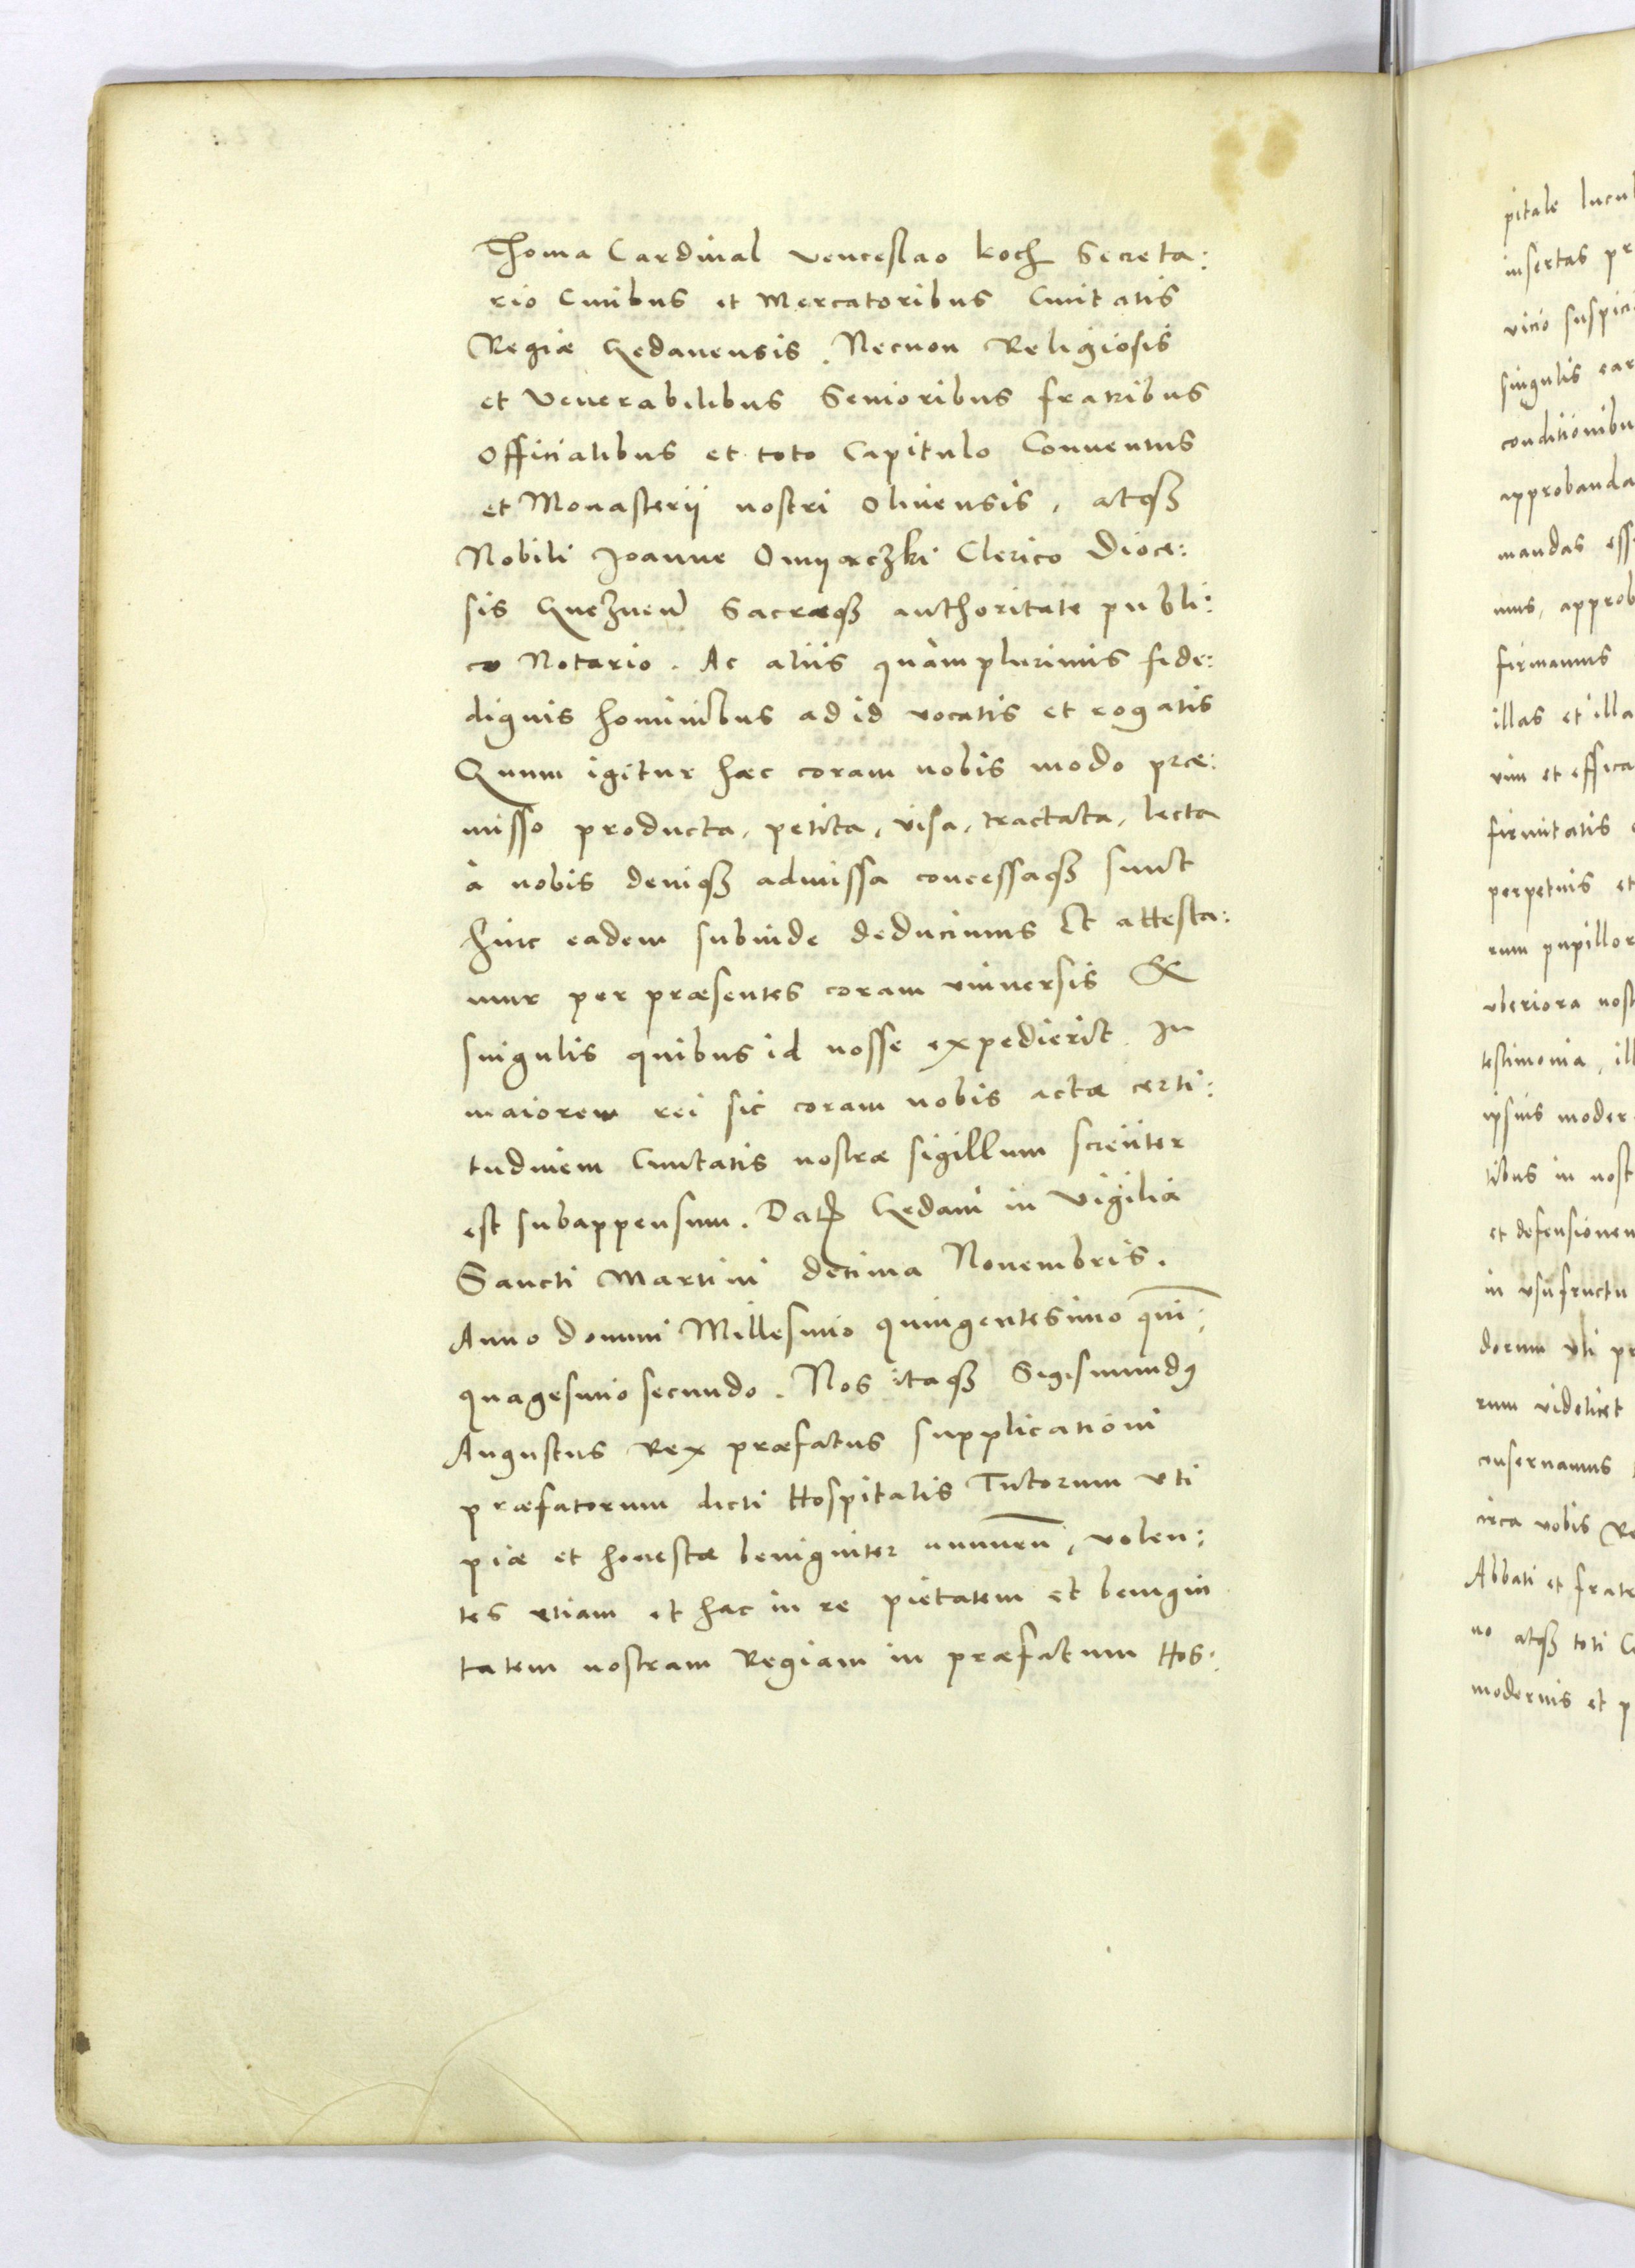 Thoma Cardinal Venceslao Koch Secreta:
rio Ciuibus et Mercatoribus Ciuitatis
Regiæ Gedanensis. Necnon Religiosis
et Venerabilibus Senioribus fratribus
Officialibus et toto Capitulo Conuentus
et Monasterij nostri Oliuensis, atqꝫ
Nobili Joanne Clerico Dioce:
sis Gneznen̄ Sacræqꝫ authoritate publi:
co Notario. Ac aliis quàmplurimis fide:
dignis hominibus ad id vocatis et rogatis
Quum igitur hæc coram nobis modo præ:
misso producta, petita, visa, tractata, lecta
à nobis deniqꝫ admissa concessaqꝫ sunt
hinc eadem subinde deducimus Et attesta:
mur per præsentes coram vniuersis &
singulis quibus id nosse expedierit. In
maiorem rei sic coram nobis actæ certi:
tudinem Ciuitatis nostræ sigillum scienter
est subappensum. Datꝭ Gedani in Vigilia
Sancti Martini decima Nouembris.
Anno domini Millesimo quingentesimo quin̄:
quagesimo secundo. Nos itaqꝫ Sigismundꝰ
Augustus Rex præfatus supplicationi
præfatorum dicti Hospitalis Tutorum vti
piæ et honestæ benigniter annuen̄, volen:
tes etiam et hac in re pietatem et benigni
tatem nostram Regiam in præfatum Hos:
pitale
insertas
vicio
singulis
approbanda
mandas
firmamus
illas et illa
vim et
firmitatis
perpetuis et
rum
vberiora
testimonia,
ipsius
tibus in
et defensionem
in vsufructu
dorum vti
rum videlicet
conseruamus
circa vobis
Abbati et
no atqꝫ toti
modernis et